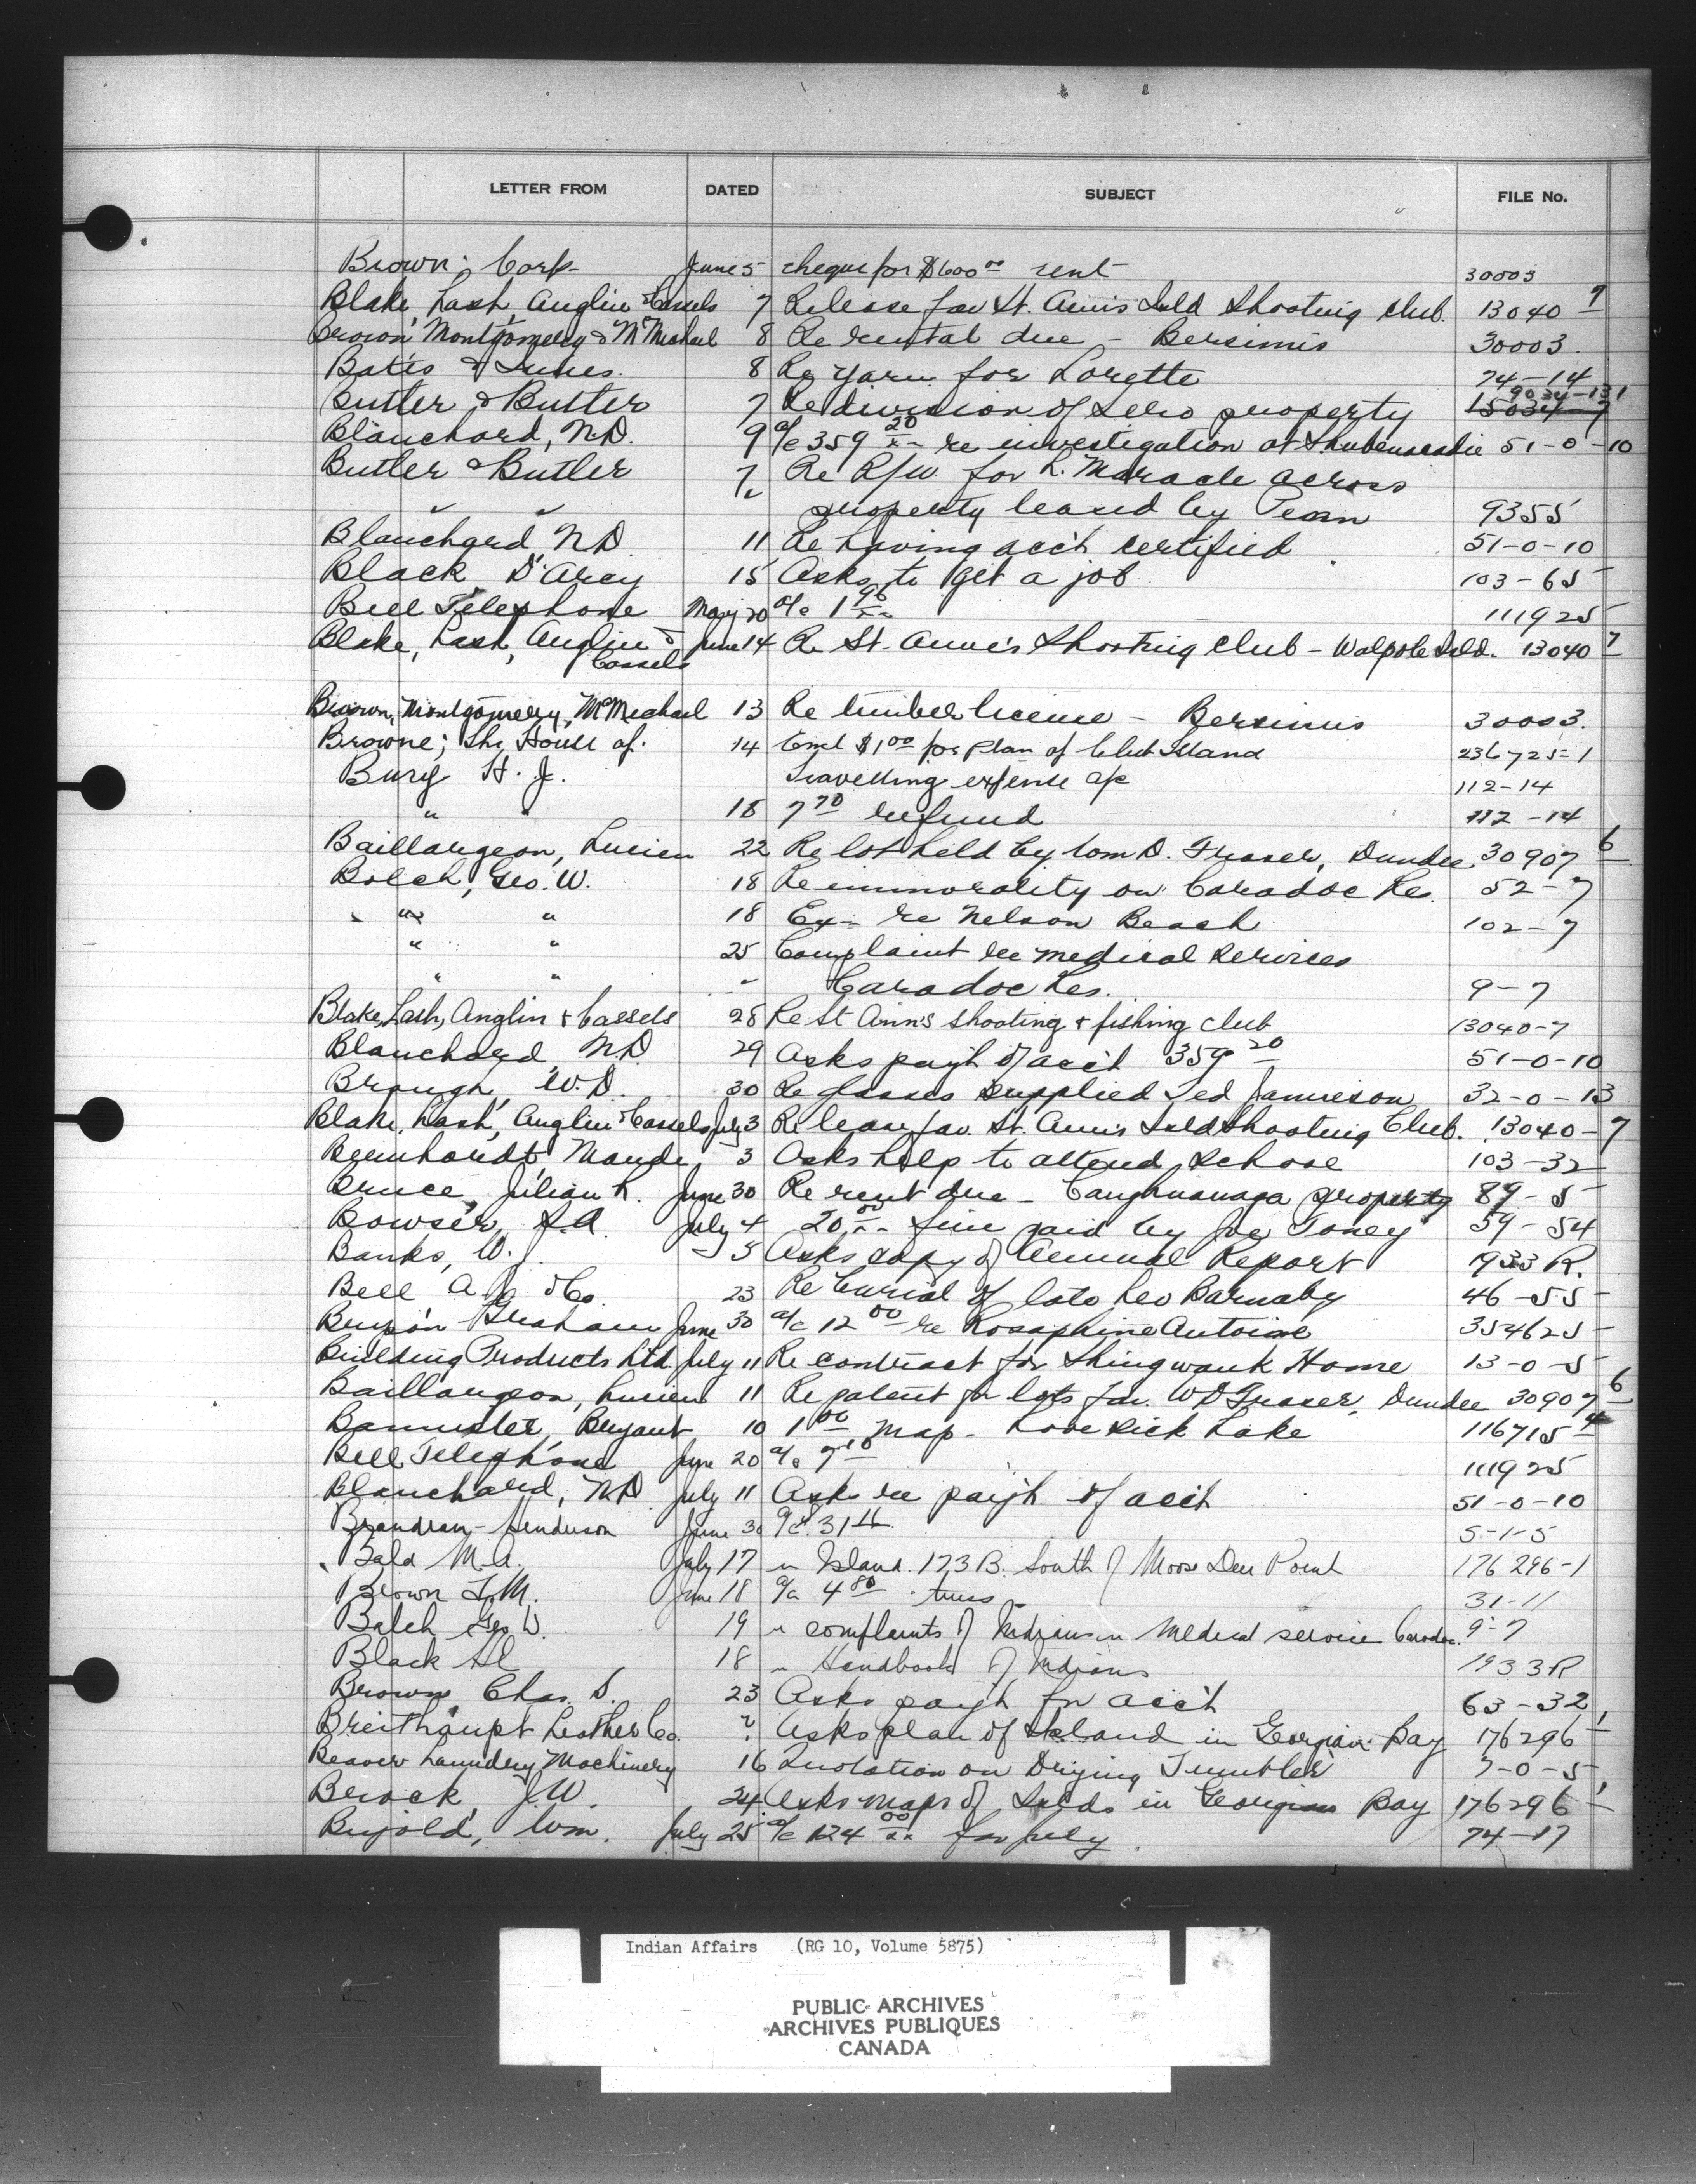 LETTER FROM DATED SUBJECT FILE No.
Brown Corp June 5 cheque for $600 00 rent 30003
Blake, Lash, Anglin & Cassels 7 Re lease fav St. Ann's Isld Shooting Club. 13040-7
Brown Montgomery & McMichael 8 Re rental due - Bersimis 30003.
Bates & Innes. 8 Re yarn for Lorette 74-14
Butler & Butler 7 Re division of Sero property 15034-7 9034-131
Blanchard, N.D. 9 a/c 359 20 re investigation at Shubenacadie 51-0-10
Butler & Butler 7 Re R/W for L. Maracle across
" " " property leased by Penn 9355
Blanchard N.D. 11 Re having acc't certified 51-0-10
Black D'Arcy 15 Asks to get a job 103-65
Bell Telephone May 20 a/c 1 96 111925
Blake, Lash, Anglin & Cassels June 14 Re St. Anne's Shooting Club - Walpole Isld. 13040-7
Brown, Montgomery, McMichael 13 Re timber license - Bersimis 30003.
Browne; The House of. 14 Encl $1 00 for plan of Club Island 236725-1
Bury H. J. Travelling expense a/c 112-14
" " 18 7 70 refund 112-14
Baillargeon, Lucien 22 Re lot held by Wm D. Fraser, Dundee 30907-6
Bolch, Geo. W. 18 Re immorality on Caradoc Res. 52-7
" " 18 Ex- re Nelson Beach 102-7
" " 25 Complaint re medical services
" " " Caradoc Res. 9-7
Blake, Lash, Anglin & Cassels 28 Re St Ann's shooting & fishing club 13040-7
Blanchard, N.D. 29 Asks pay't of acc't 359 20 51-0-10
Brough, W.D. 30 Re glasses supplied Ted Jamieson 32-0-13
Blake, Lash, Anglin & Cassels July 3 Re lease fav. St. Ann's Isld Shooting Club. 13040-7
Bernhardt, Maude 3 Asks help to attend school 103-32
Bruce, Julian R. June 30 Re rent due - Caughnawaga property 89-5
Bowser, July 4 20 00 fine paid by Joe Toney 59-54
Banks, W. J. 5 Asks copy of Annual Report 1933 R.
Bell A & Co. 23 Re burial of late Leo Barnaby 46-55
Graham June 30 a/c 12 00 re Rosaphine Antoine 354625
Building Products Ltd. July 11 Re contract for Shingwauk Home 13-0-5
Baillargeon, Lucien 11 Re patent for lots fav. W D Fraser, Dundee 30907-6
Bannister, Bryant 10 1 00 map - Lobstick Lake 116715-4
Bell Telephone June 20 a/c 7 10 111925
Blanchard, N.D. July 11 Asks re pay't of acc't 51-0-10
Brandram-Henderson June 30 a/c 31 5-1-5
Bald M.A. July 17 re Island 173 B. South of Moose Deer Point 176296-1
Brown June 18 a/c 4 80 truss 31-11
Balch Geo W. 19 re complaints of Indians re Medical service Caradoc. 9-7
Black 18 re Handbook of Indians 1933R
Brown, Chas. S. 23 Asks pay't for acc't 63-32
Breithaupt Leather Co. ? Asks plan of Island in Georgian Bay 176296-1
Beaver Laundry Machinery 16 Quotation on Drying Tumbler 7-0-5
Brock, J.W. 24 Asks maps of Islds in Georgian Bay 176296-1
Bujold, Wm. July 25 a/c 124 00 for July 74-17
Indian Affairs (RG 10, Volume 5875)
PUBLIC ARCHIVES
ARCHIVES PUBLIQUES
CANADA